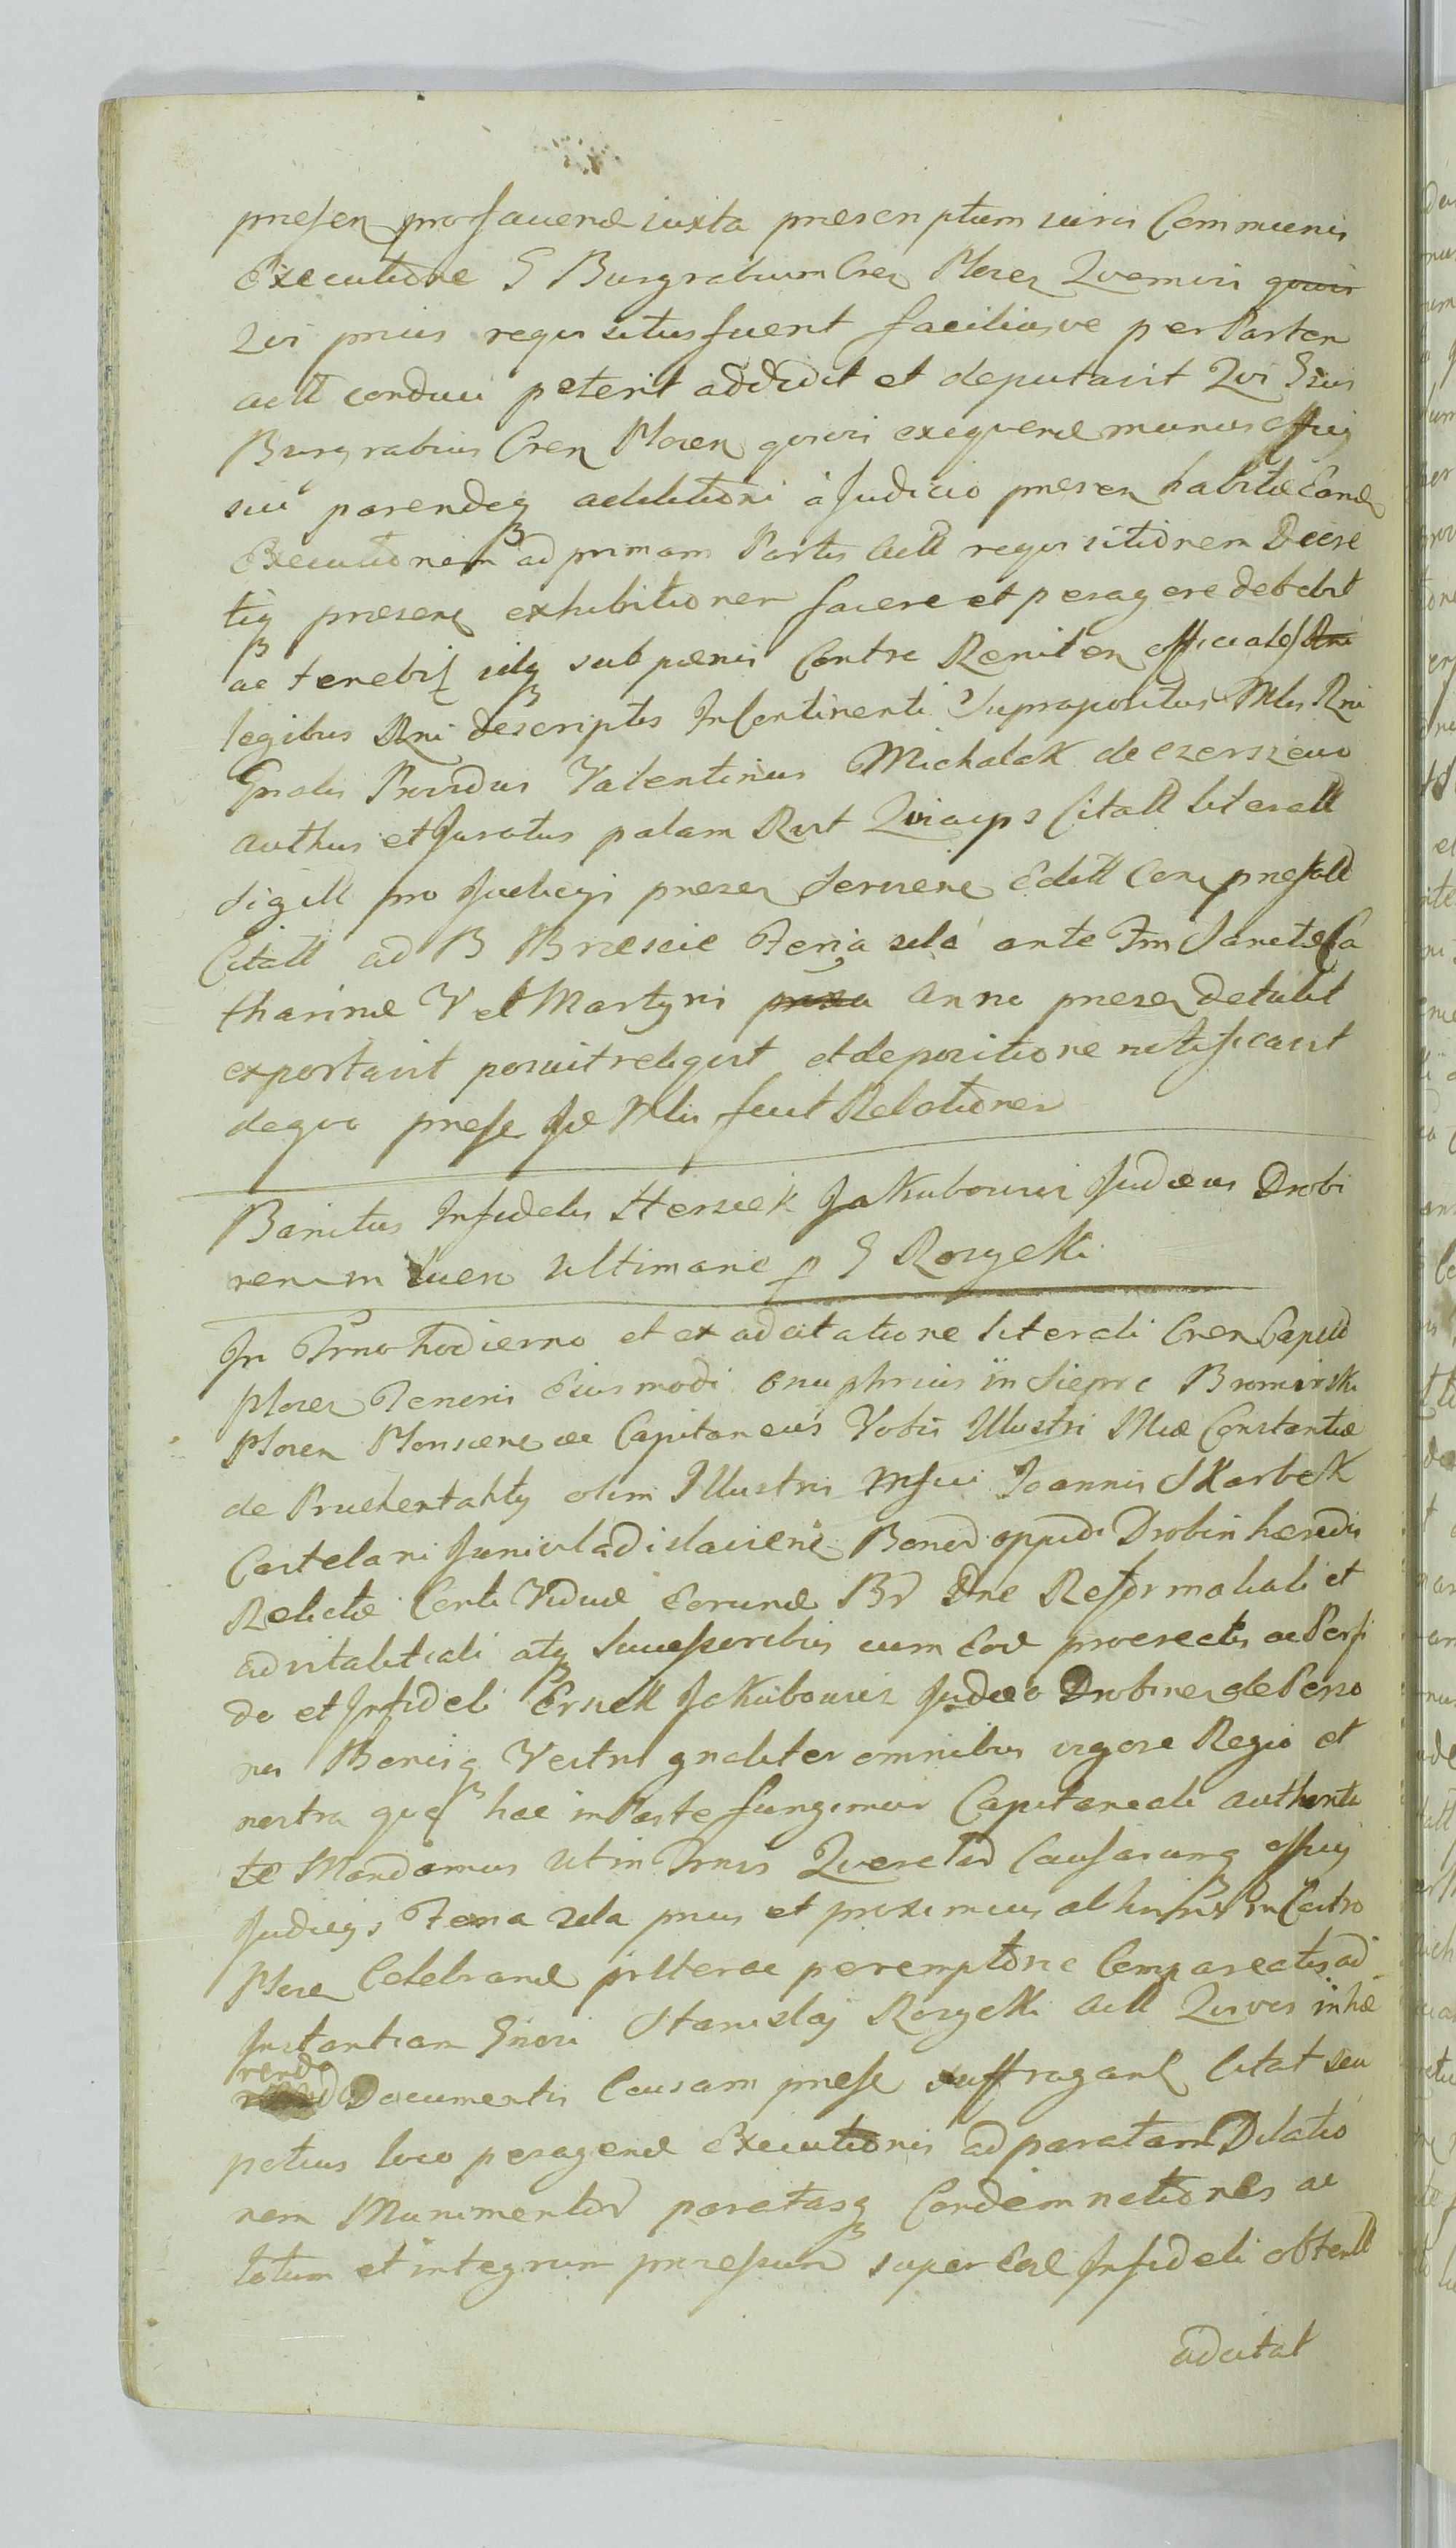 presen pro favend iuxta prescriptum iuris Communis
Executione G Burgrabium Cren Plocen Quemvis quvis
Qui prius requisitus fuerit faciliusve per Parten
actt conduci poterit addidit et deputavit Qui Gsus
Burgrabius Cren Plocen qvivis exequend munus officij
sui parendoq additioni à Judicio presen habitæ Eand
Executionem ad primam Partis Actt requisitionem Decre
tiq presen exhibitionem facere et peragere debebit
ac tenebit idq sub pænis Contra Reniten officiales Rni
legibus Rni descriptis Incontinenti Suprapositus Mlis Rni
Gnalis Providus Valentinus Michalak de czerszewo
authus et Juratus palam Rvit Qvia ips Citatt literatt
sigitt pro Judicijs presen Serviene Editt Cen presatt
Citatt ad B Brzescie Feria 2da ante Fm Sanctæ Ca
tharinæ V et Martyris prexa anno presen detulit
exportavit posuit reliqvit et de positione notificavit
de qvo prese sæ Mlis fecit Relationem
Banitus Infidelis Herszek Jakubowicz Judæus Drobi
nensis in Luen ultimarie p G Roszytki
In Trno hodierno et ex adcitatione literali Cren Capitl
Plocen Tenoris Eiusmodi Onuphrius in Siepre Bromirski
Plocen Plonscen ac Capitaneus Vobis Illustri Mcæ Constantiæ
de Pruchentahly olim Illustris Msici Joannis Skarbek
Castelani Juniwladislavien Bonor oppidi Drobin hæredis
Relictæ Certi Viduæ Eorund Br Dnæ Reformatiali et
advitalitiali atq Successoribus cum Eod procreatis ac Perfi
do et Infideli Erszek Jakubowicz Judæo Drobinen de Perso
nis Bonisq Vestris gnaliter omnibus vigore Regia et
nostra qua hac in Parte fungimur Capitaneali authorita
te Mandamus ut in Trnis Querelar Causarumq officij
Judicijs Feria 2da prius et proxime ab hinc In Castro
Plocen Celebrand personaliter ac peremptorie Compareatis ad
Instantiam Gnosi Stanislaj Roszytki Actt Qvi vos inhæ
rendo Documentis Causam prese suffragant Citat seu
potius loco peragend Executionis ad paratam Dilatio
nem Munimentor paratasq Condemnationes ac
totum et integrum processum super Eod Infideli obtentt
adcitat